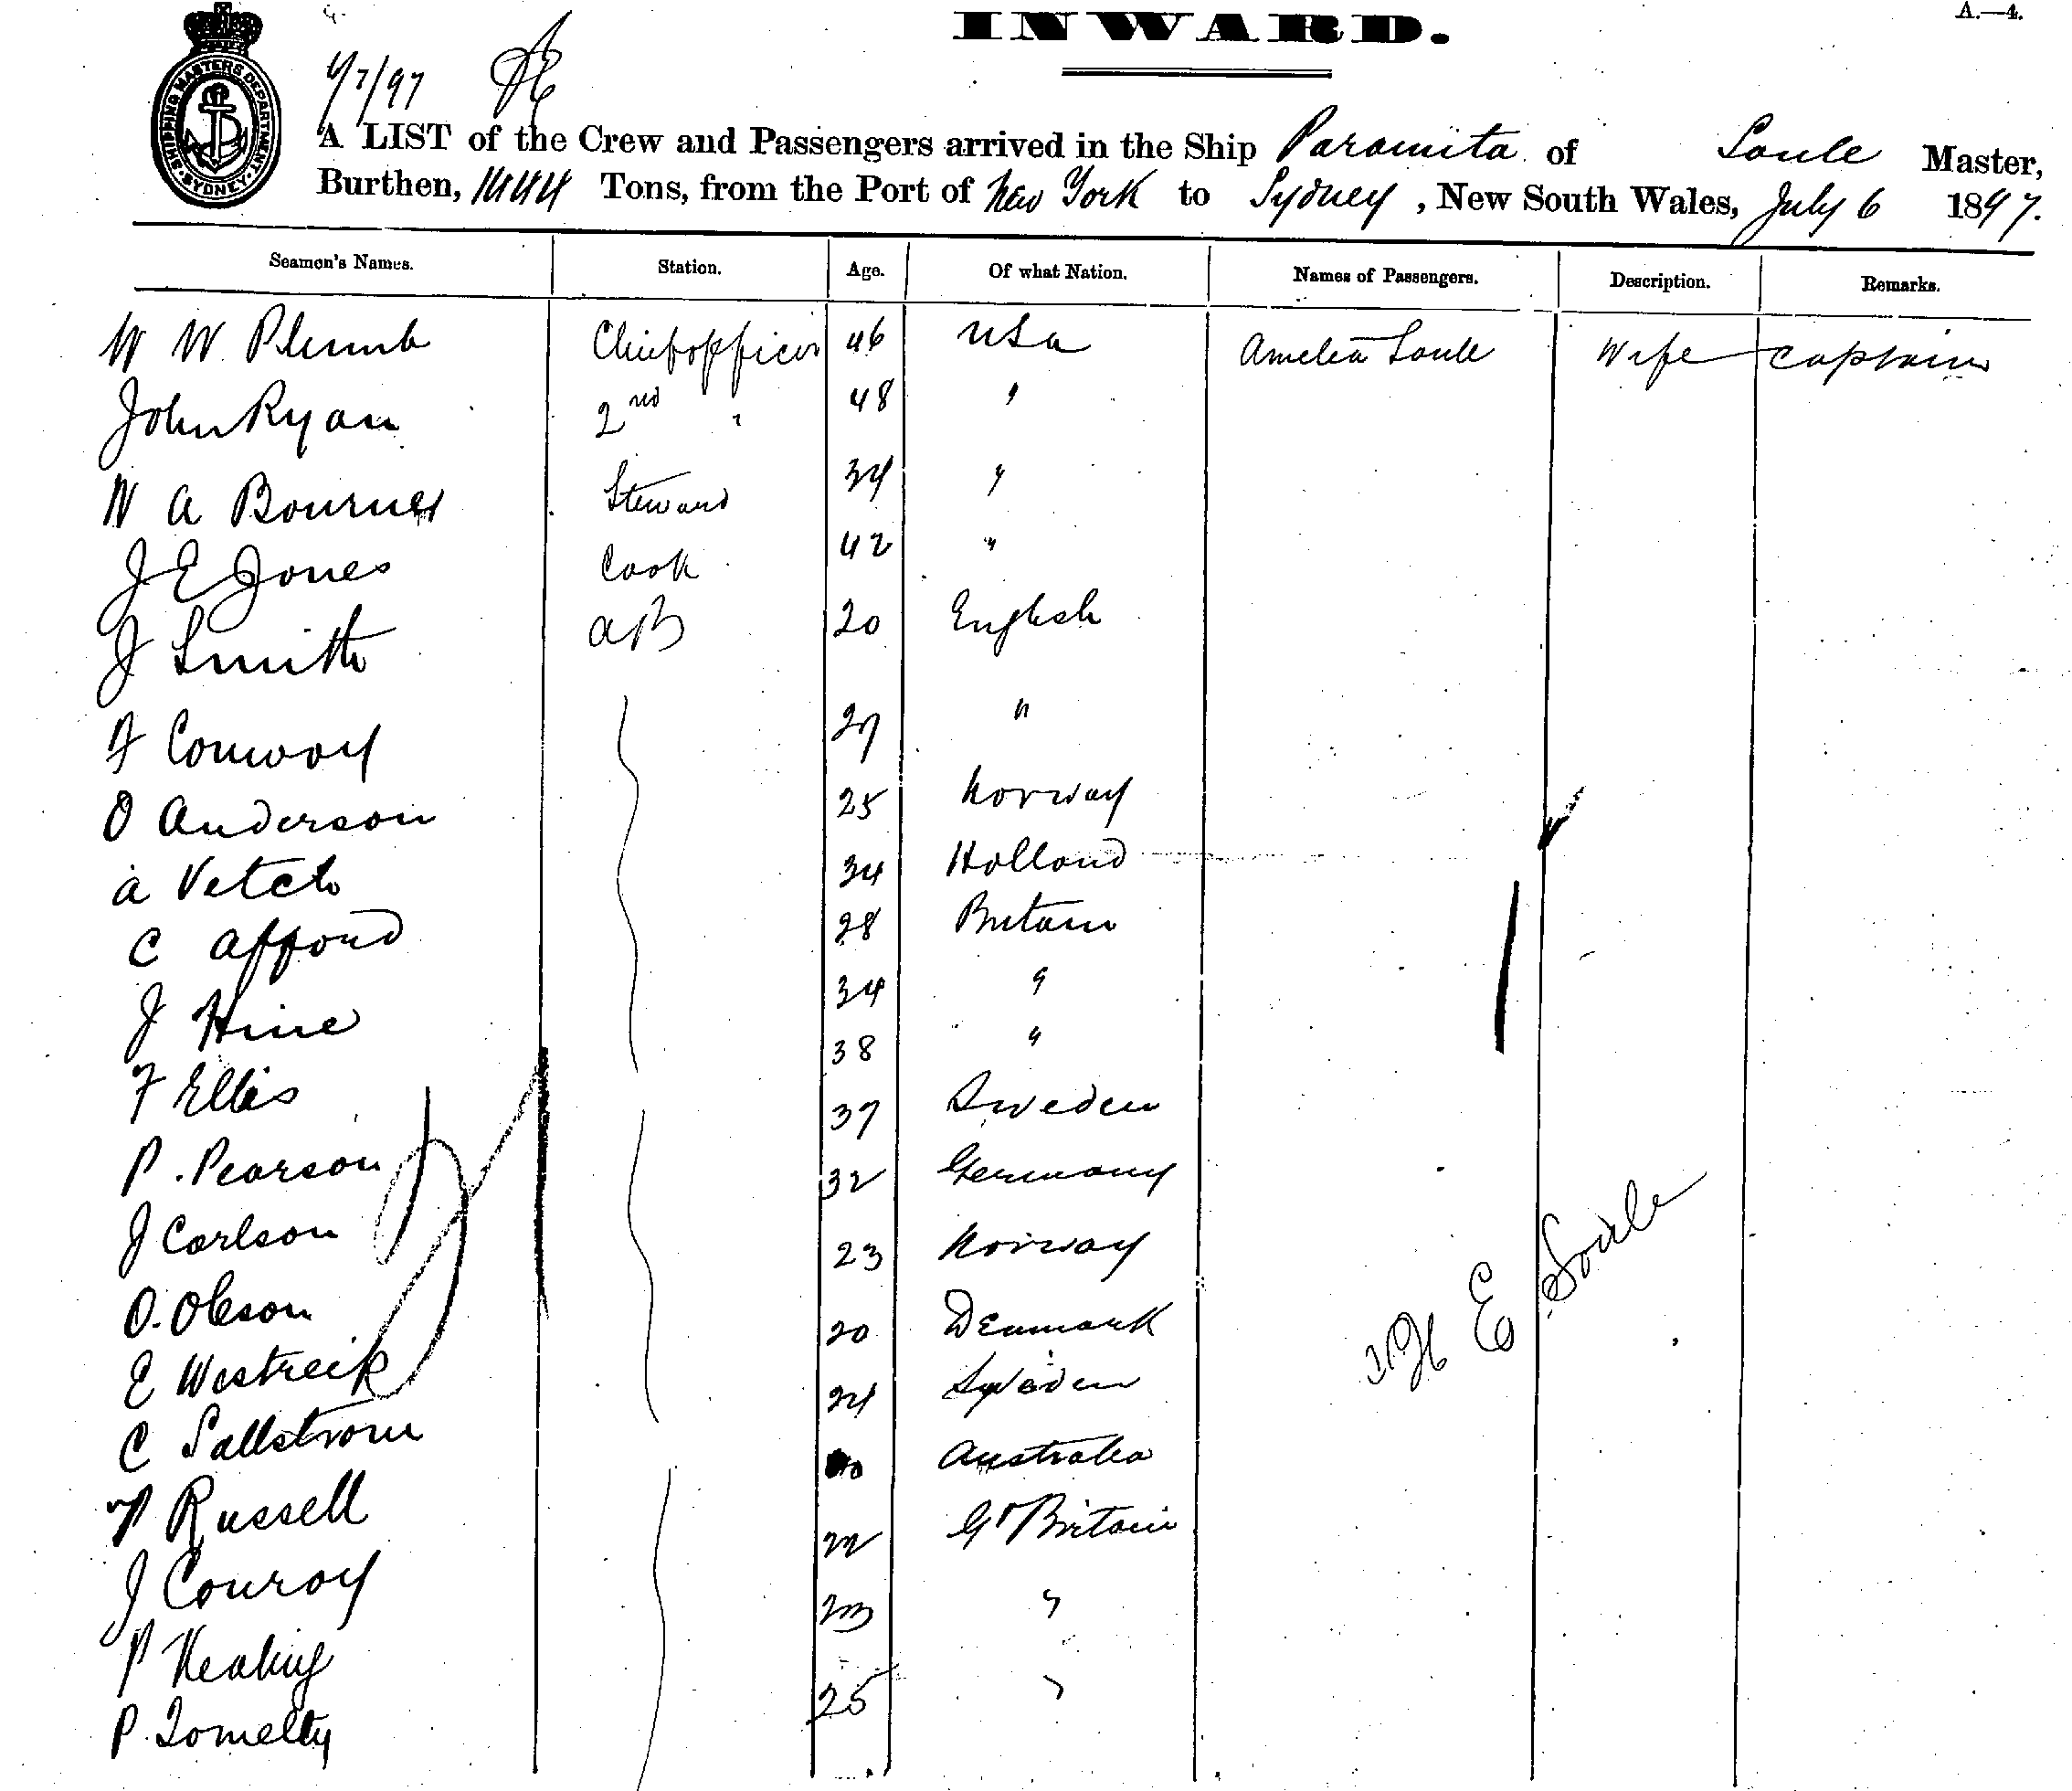 INWARD.
A.—4.
SHIPPING MASTERS DEPARTMENT SYDNEY
6/7/97
A LIST of the Crew and Passengers arrived in the Ship Paramita of Soule Master,
Burthen, 1444 Tons, from the Port of New York to Sydney, New South Wales, July 6 1897.
Seamen's Names. Station. Age. Of what Nation. Names of Passengers. Description. Remarks.
W W Plumb Chief officer 46 USa Amelia Soule Wife captain
John Ryan 2nd " 48 "
W a Bournes Steward 34 "
J E Jones Cook 42 "
J Smith aB 20 English
F Conway 27 "
O Anderson 25 Norway
a Vetch 34 Holland
C Afford 28 Britain
J Hine 34 "
F Ellis 38 "
P. Pearson 37 Sweden
J Carlson 32 Germany
O. Oleson 23 Norway
E Westreik 20 Denmark
C Sallstrom 24 Sweden
P Russell Australia
J Conroy 22 Gt Britain
P Healing 23 "
P. Tomelty 25 "
E Soule